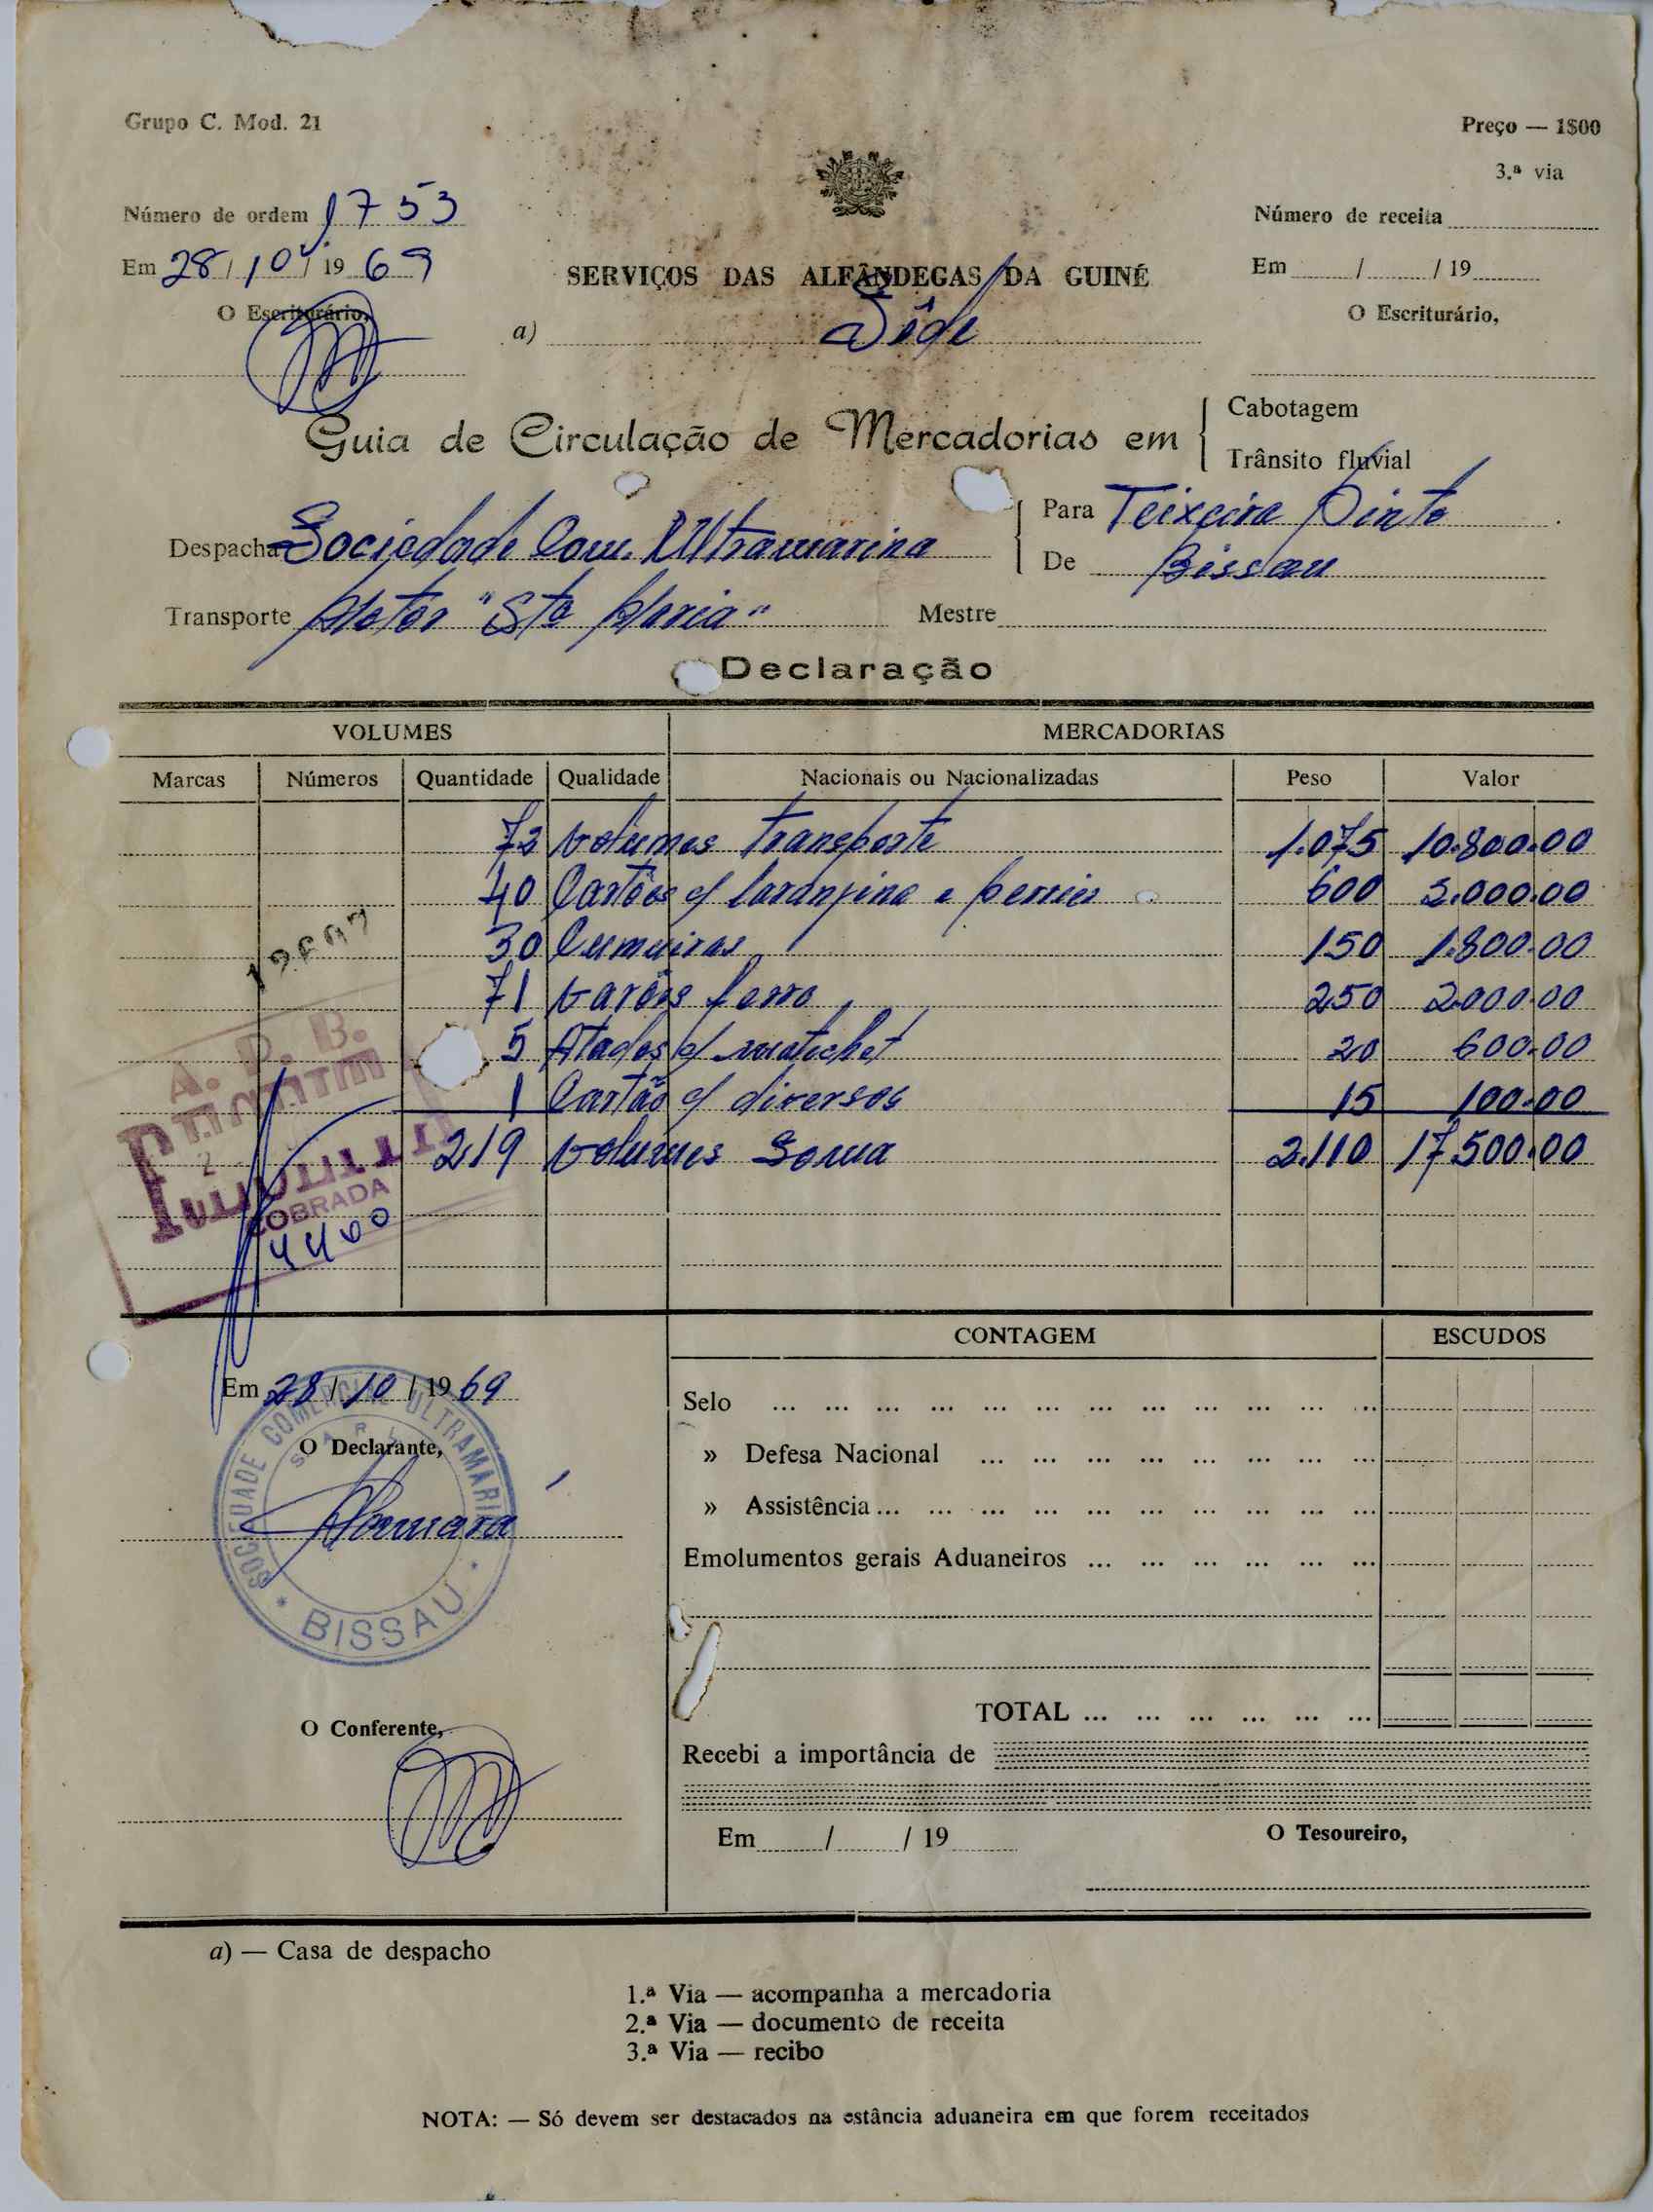 Grupo C. Mod. 21
Preço — 1$00
3.ª via
Número de ordem 1753
Em 28/10/1969
O Escriturário,
Número de receita
Em / / 19
O Escriturário,
SERVIÇOS DAS ALFÂNDEGAS DA GUINÉ
a) Séde
Guia de Circulação de Mercadorias em
Cabotagem
Trânsito fluvial
Despacha Sociedade Com. Ultramarina
Para Teixeira Pinto
De Bissau
Transporte Motor "Sta Maria" Mestre
Declaração
VOLUMES MERCADORIAS
Marcas Números Quantidade Qualidade Nacionais ou Nacionalizadas Peso Valor
72 Volumes transporte 1.075 10.800.00
40 Cartões c/ laranjina e perrier 600 2.000.00
30 Cumueiras 150 1.800.00
71 Varões ferro 250 2.000.00
5 Atados c/ 20 600.00
1 Cartão c/ diversos 15 100.00
219 Volumes Soma 2.110 17.500.00
A. P. B.
COBRADA
CONTAGEM ESCUDOS
Em 28/10/1969
O Declarante,
SOCIEDADE COMERCIAL ULTRAMARINA
S A R L
BISSAU
Selo ... ... ... ... ... ... ... ... ... ... ... ...
» Defesa Nacional ... ... ... ... ... ... ... ...
» Assistência ... ... ... ... ... ... ... ... ... ...
Emolumentos gerais Aduaneiros ... ... ... ... ... ...
TOTAL ... ... ... ... ... ...
O Conferente,
Recebi a importância de
Em / / 19
O Tesoureiro,
a) — Casa de despacho
1.ª Via — acompanha a mercadoria
2.ª Via — documento de receita
3.ª Via — recibo
NOTA: — Só devem ser destacados na estância aduaneira em que forem receitados